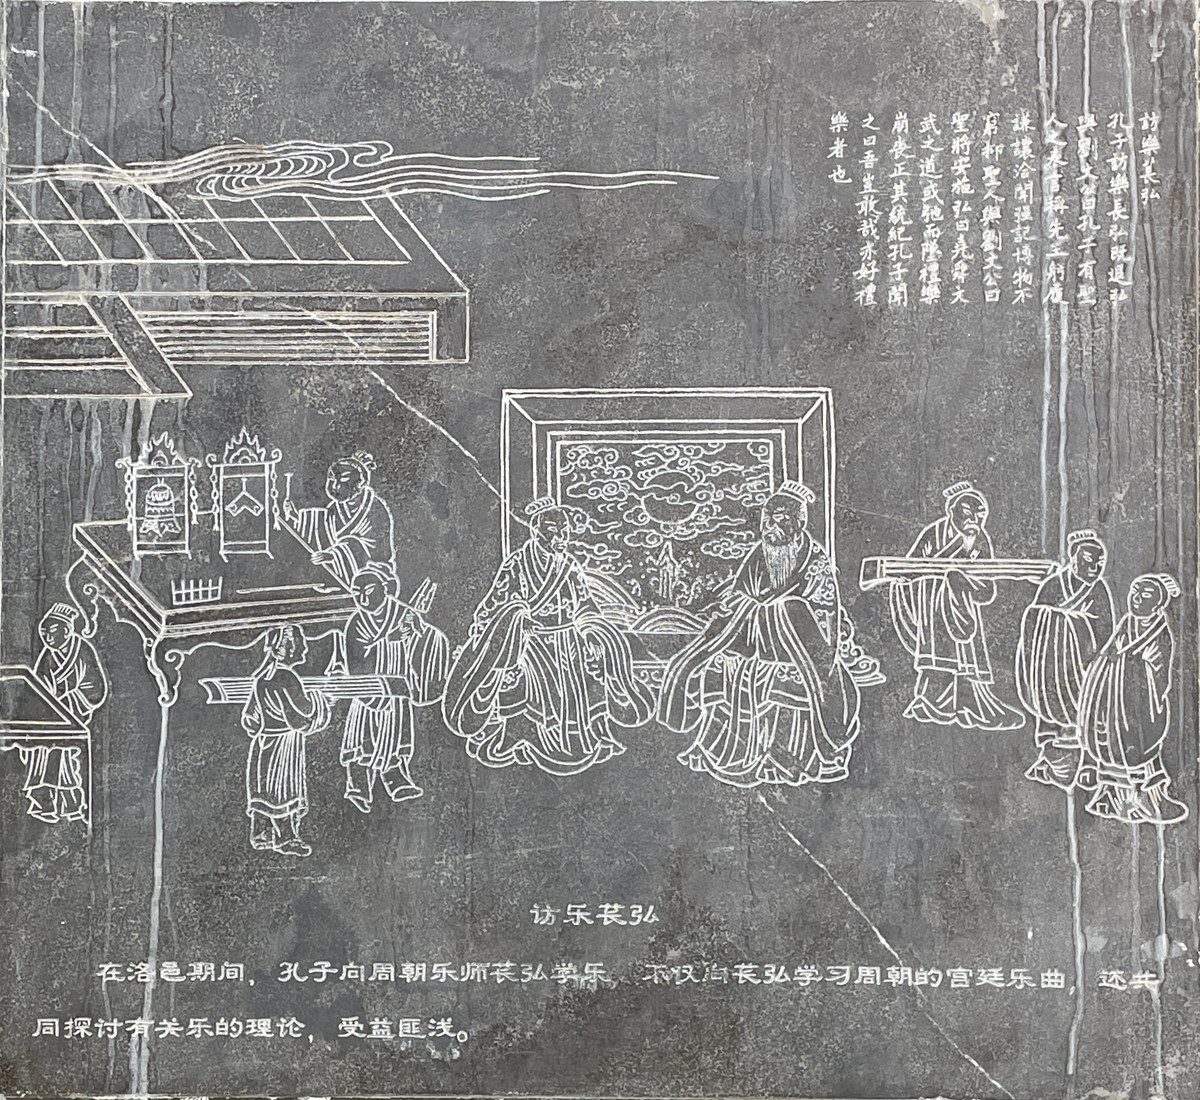 訪樂萇弘
孔子訪樂萇弘既退弘
與劉文公曰孔子有聖
人之表言稱先王躬履
謙讓洽聞强記博物不
窮抑聖人與劉文公曰
聖將安施弘曰堯舜文
武之道或弛而墜禮樂
崩喪正其統紀孔子聞
之曰吾豈敢哉亦好禮
樂者也
访乐苌弘
在洛邑期间，孔子向周朝乐师苌弘学乐。不仅向苌弘学习周朝的宫廷乐曲，还共
同探讨有关乐的理论，受益匪浅。